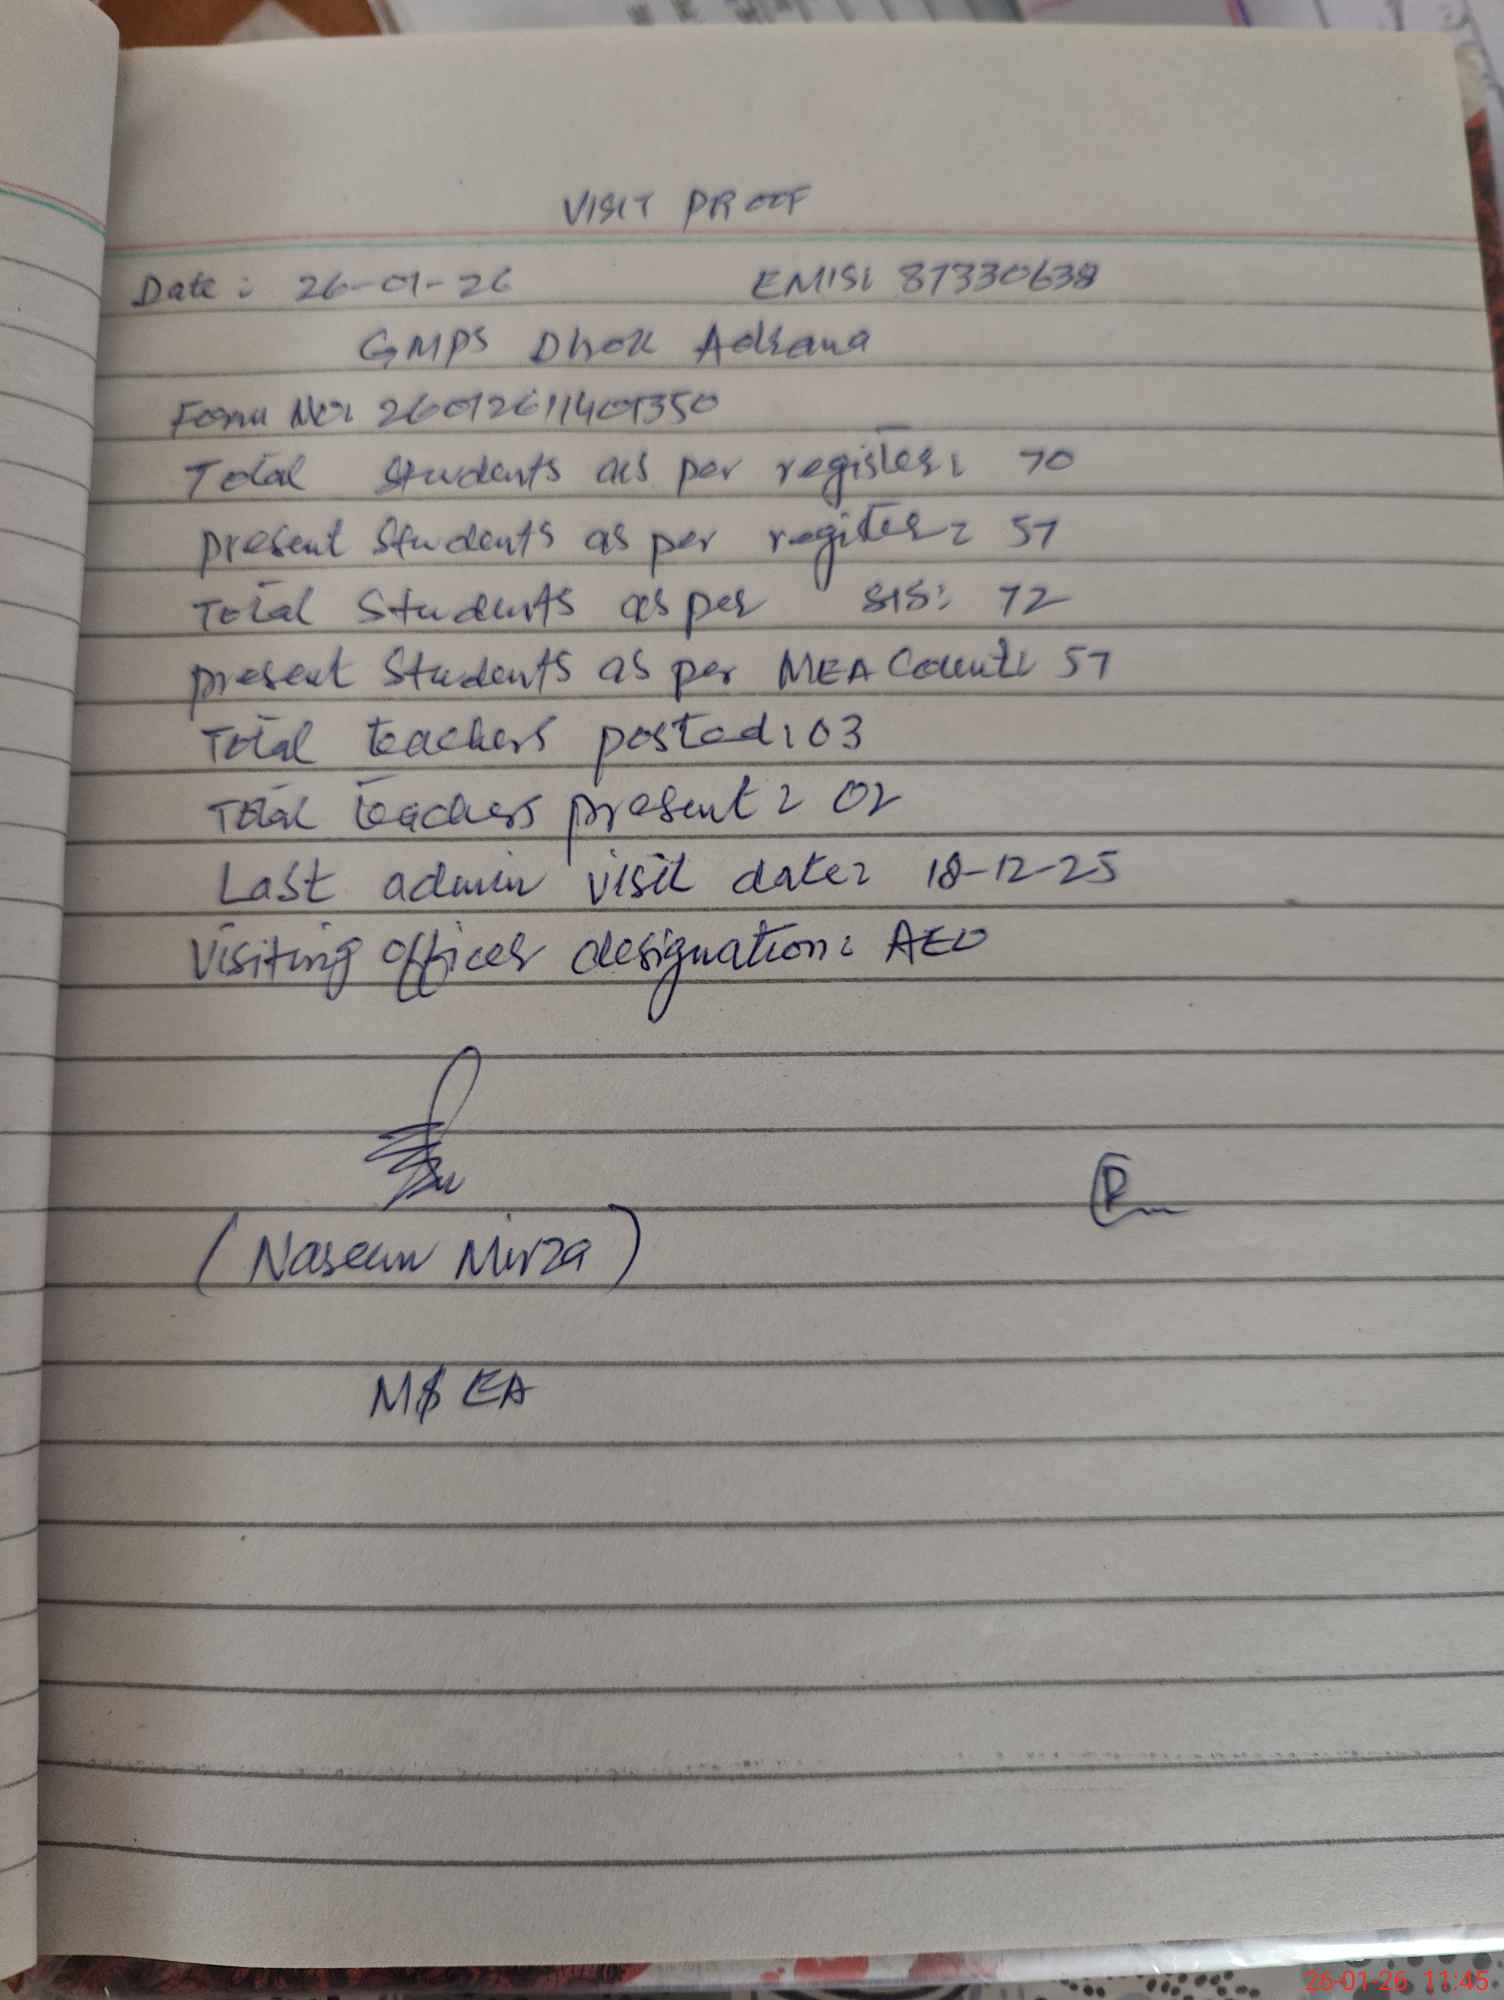 VISIT PROOF
Date: 26-01-26 EMIS: 87330638
GMPS Dhok Adrana
Form No: 26012611401350
Total students as per register: 70
present students as per register: 57
Total Students as per SIS: 72
present students as per MEA Count: 57
Total teachers posted: 03
Total teachers present: 02
Last admin visit date: 18-12-25
Visiting officer designation: AEO
(Naseem Mirza)
MEA
26-01-26 11:45